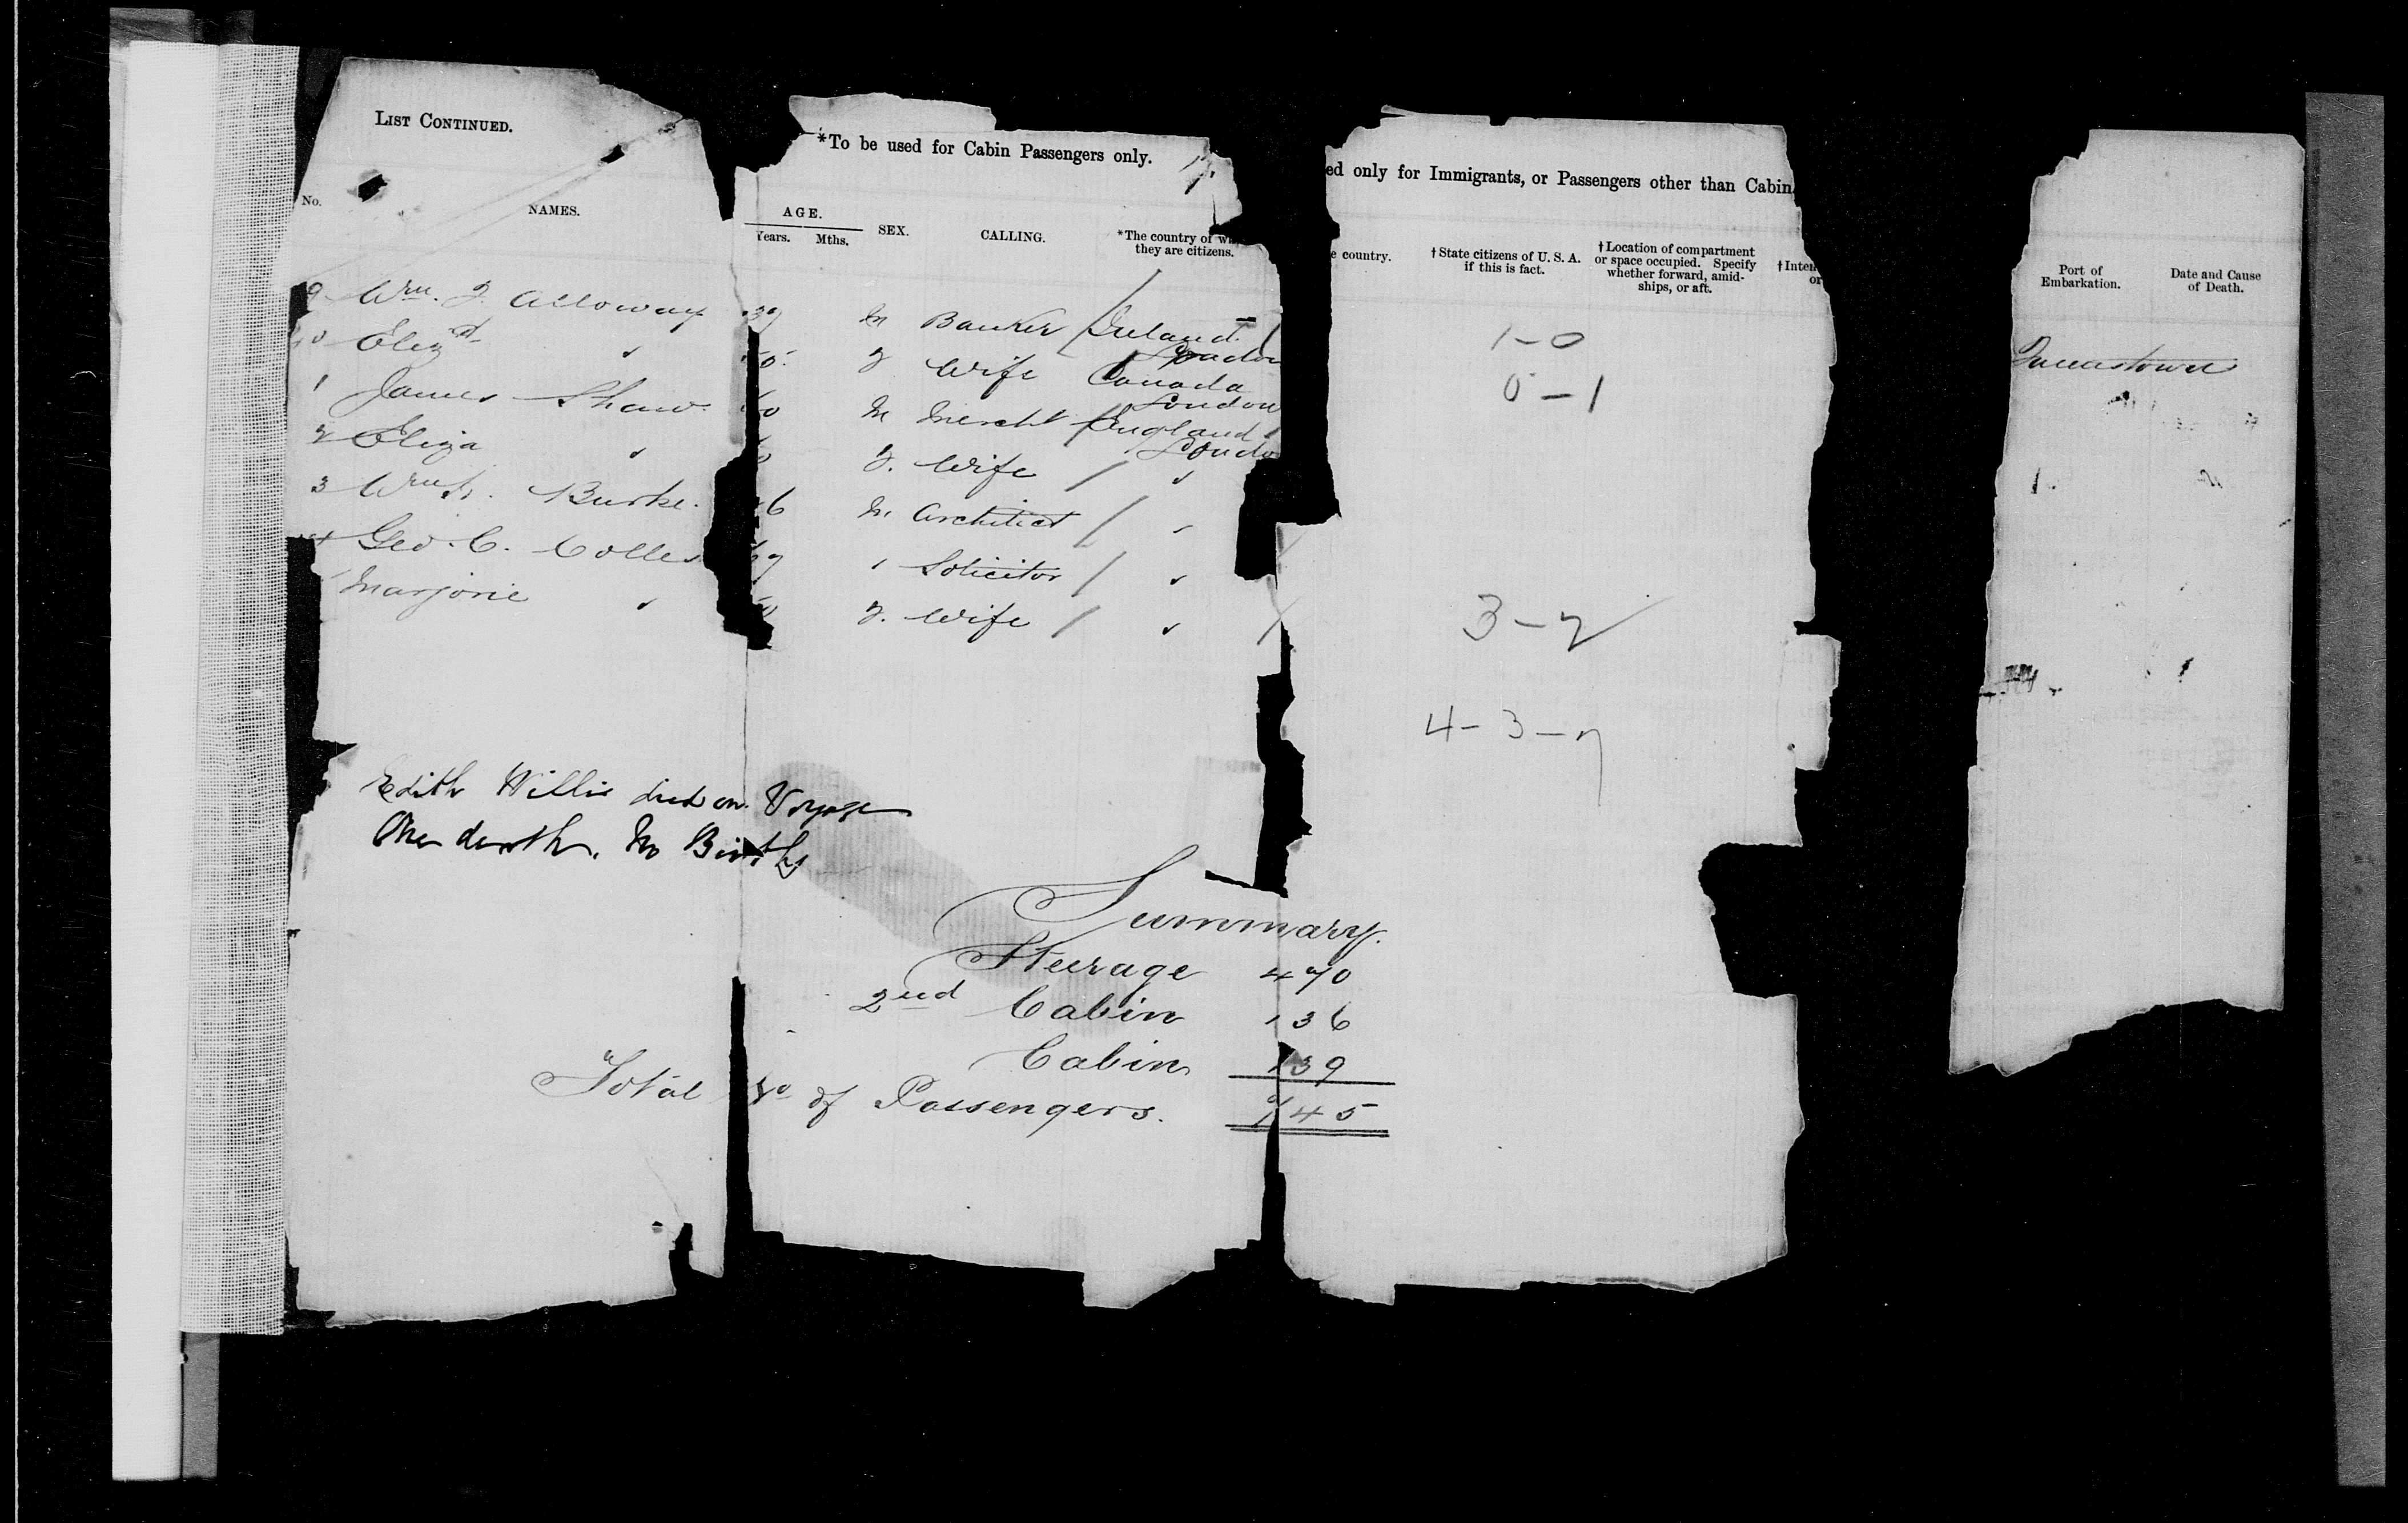 LIST CONTINUED.
*To be used for Cabin Passengers only.
ed only for Immigrants, or Passengers other than Cabin
No. NAMES. AGE. Years. Mths. SEX. CALLING. *The country of wh they are citizens. e country. †State citizens of U. S. A. if this is fact. †Location of compartment or space occupied. Specify whether forward, amid-ships, or aft. †Inten or Port of Embarkation. Date and Cause of Death.
9 Wm. J. Alloway 39 M Banker Ireland London 1-0 Queenstown
Elizth " F Wife Canada London 0-1
1 James Shaw 60 M Mercht England London
2 Eliza " F. Wife "
3 Wm. Burke. 6 M. Architect "
4 Geo. C. Colles 7 " Solicitor "
Marjorie " F. Wife " 3-2
4-3-7
Edith Willis died on Voyage
One death. No Births
Summary.
Steerage 470
2nd Cabin 136
Cabin 139
Total No of Passengers. 745